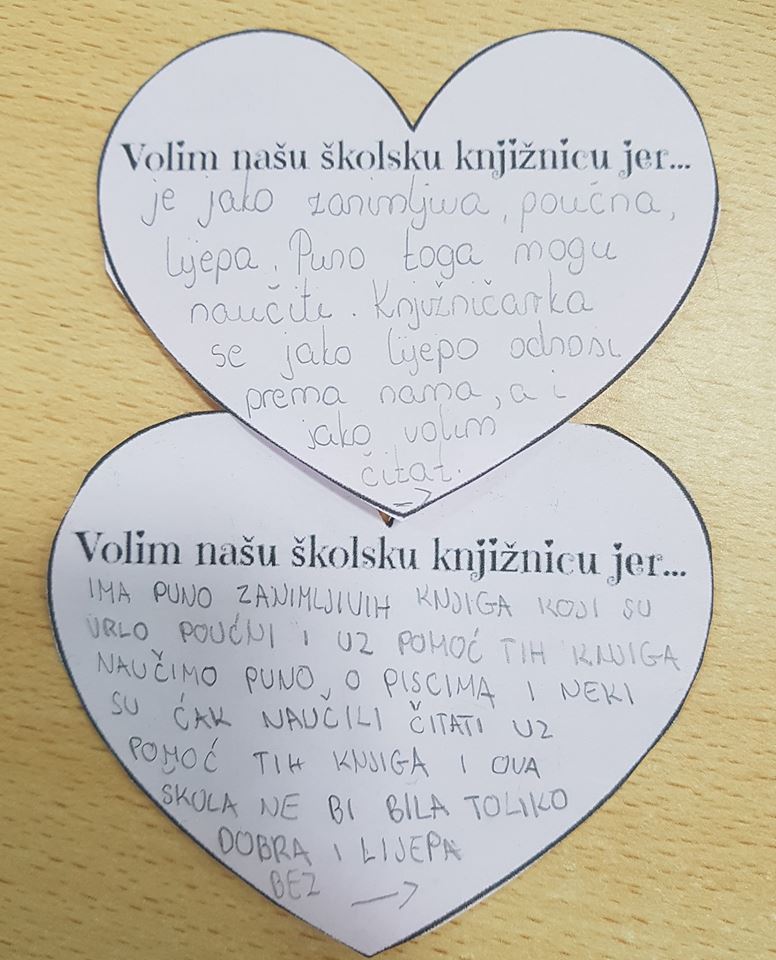 Volim našu školsku knjižnicu jer...
je jako zanimljiva, poučna,
lijepa. Puno toga mogu
naučiti. Knjižničarka
se jako lijepo odnosi
prema nama, a i
jako volim
čitat.
→
Volim našu školsku knjižnicu jer...
IMA PUNO ZANIMLJIVIH KNJIGA KOJI SU
VRLO POUĆNI I UZ POMOĆ TIH KNJIGA
NAUČIMO PUNO O PISCIMA I NEKI
SU ĆAK NAUČILI ČITATI UZ
POMOĆ TIH KNJIGA I OVA
SKOLA NE BI BILA TOLIKO
DOBRA I LIJEPA
BEZ →